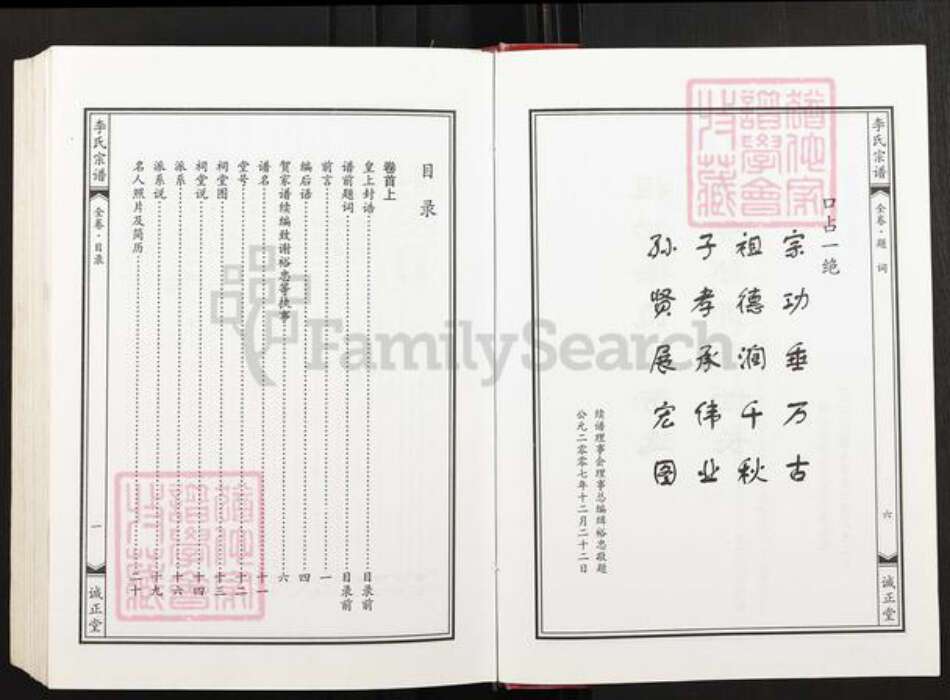 李氏宗谱
全卷·题词
六
诚正堂
口占一绝
宗功垂万古
祖德润千秋
子孝承伟业
孙贤展宏图
续谱理事会理事总编缉裕忠敬题
公元二零零七年十二月二十二日
李氏宗谱
全卷·目录
一
诚正堂
目录
卷首上
皇上封诰 目录前
谱前题词 目录前
前言 一
编后语 四
贺家谱续编致谢裕忠等执事 六
谱名 十一
堂号 十二
祠堂图 十三
祠堂说 十四
派系 十六
派系说 十九
名人照片及简历 二十
FamilySearch